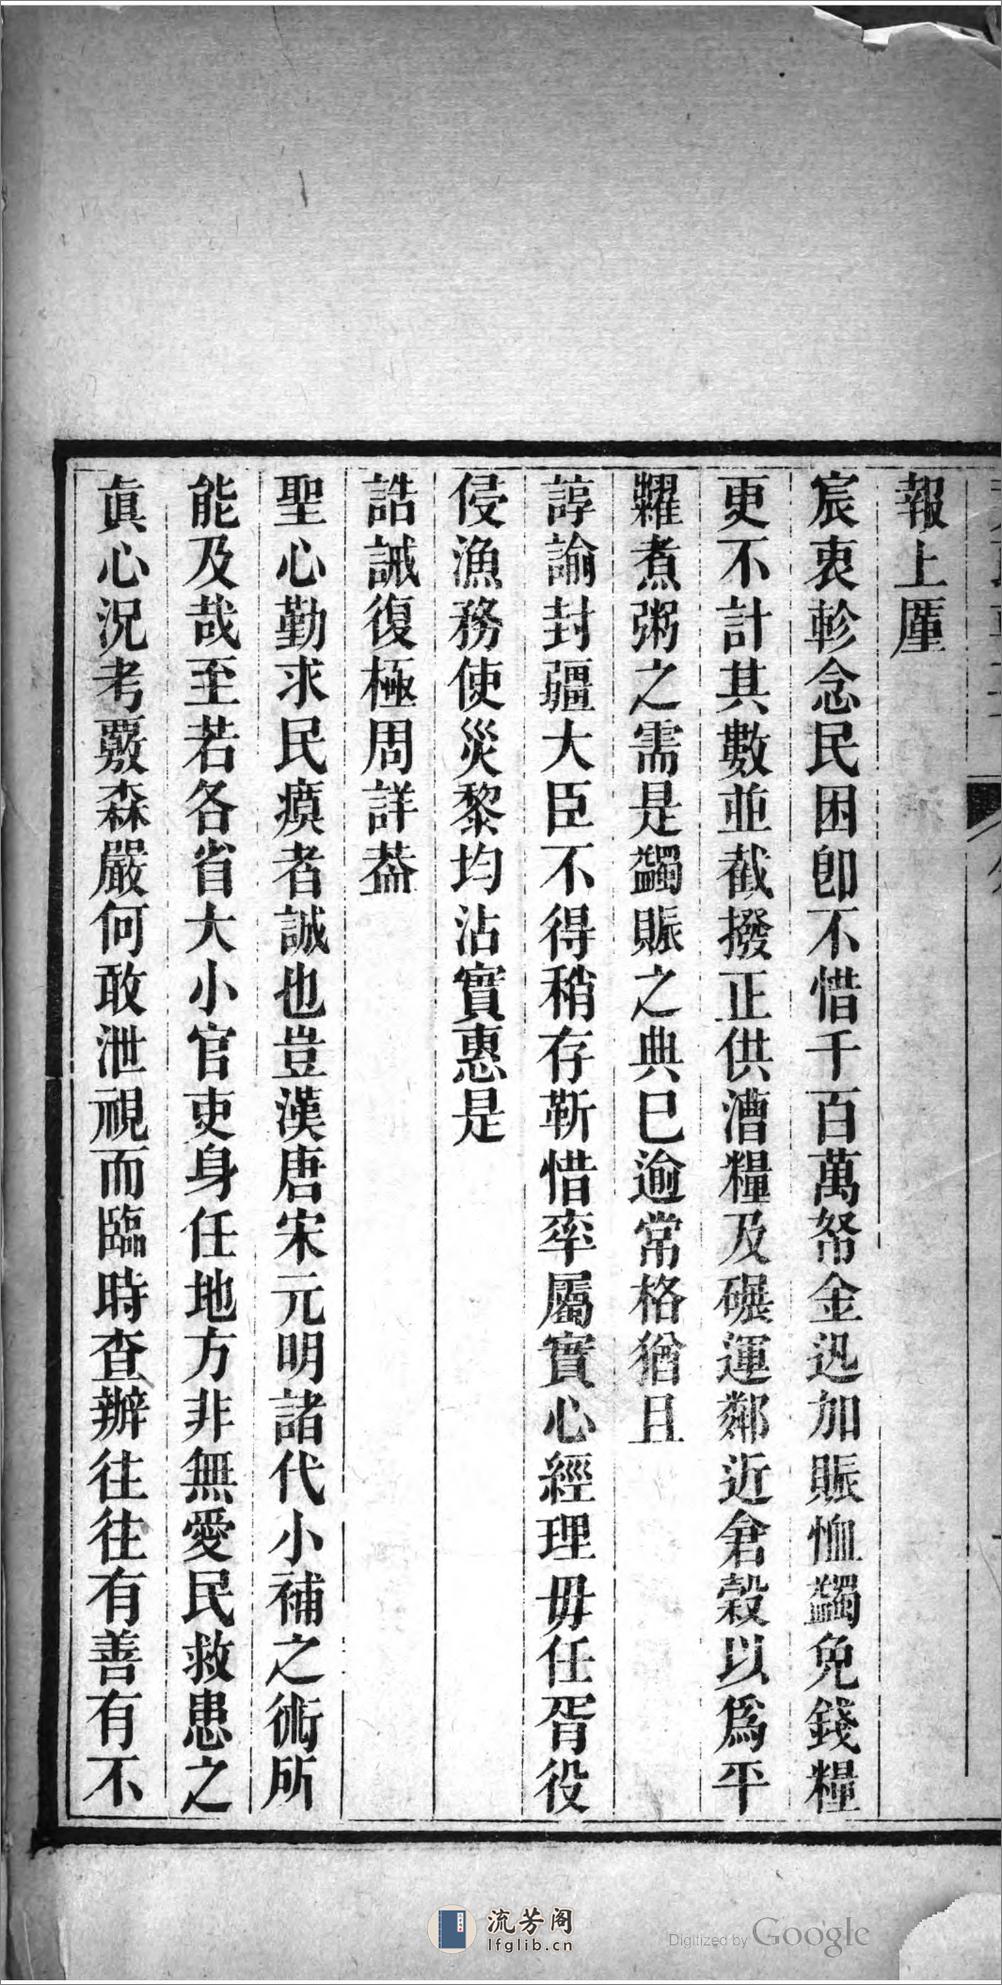 報上廑
宸衷軫念民困卽不惜千百萬帑金迅加賑恤蠲免錢糧
更不計其數並截撥正供漕糧及碾運鄰近倉穀以爲平
糶煮粥之需是蠲賑之典巳逾常格猶且
諄諭封疆大臣不得稍存靳惜率屬實心經理毋任胥役
侵漁務使災黎均沾實惠是
誥誡復極周詳葢
聖心勤求民瘼者誠也豈漢唐宋元明諸代小補之術所
能及哉至若各省大小官吏身任地方非無愛民救患之
眞心況考覈森嚴何敢泄視而臨時查辦往往有善有不
流芳阁
lfglib.cn
Digitized by Google